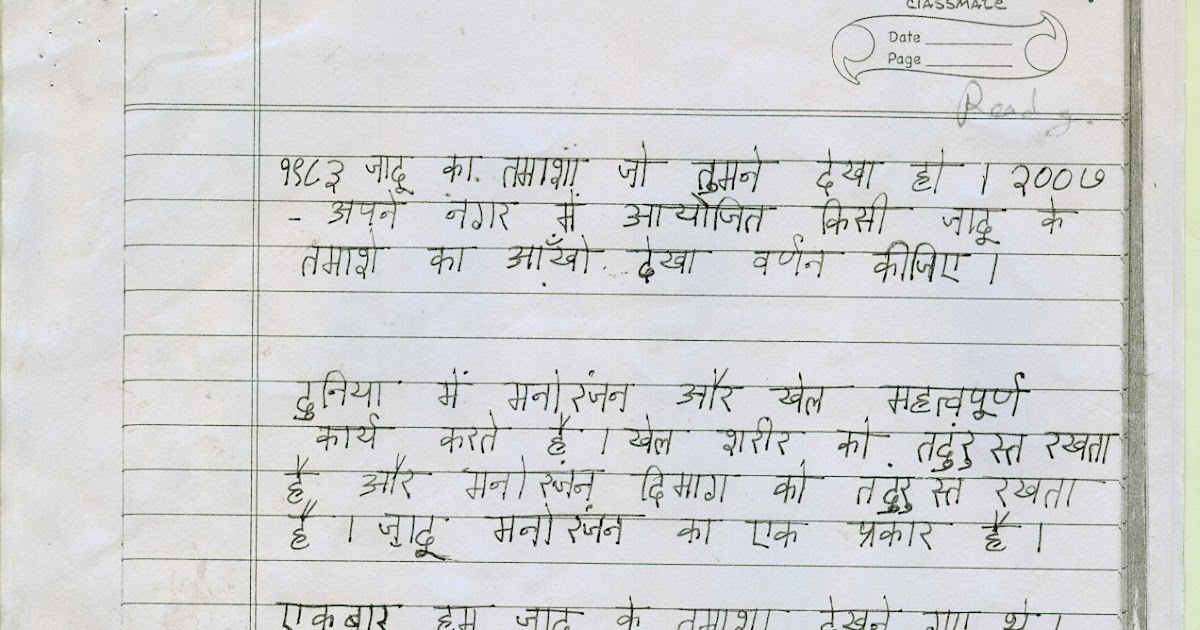 classmate
Date
Page
Read
१९८३ जादू का तमाशा जो तुमने देखा हो । २००७
- अपने नगर में आयोजित किसी जादू के
तमाशे का आँखो देखा वर्णन कीजिए ।
दुनिया में मनोरंजन और खेल महत्वपूर्ण
कार्य करते है । खेल शरीर को तदुंरुस्त रखता
है और मनोरंजन दिमाग को तदुरुस्त रखता
है । जादू मनोरंजन का एक प्रकार है ।
एकबार हम जादू के तमाशा देखने गए थे ।